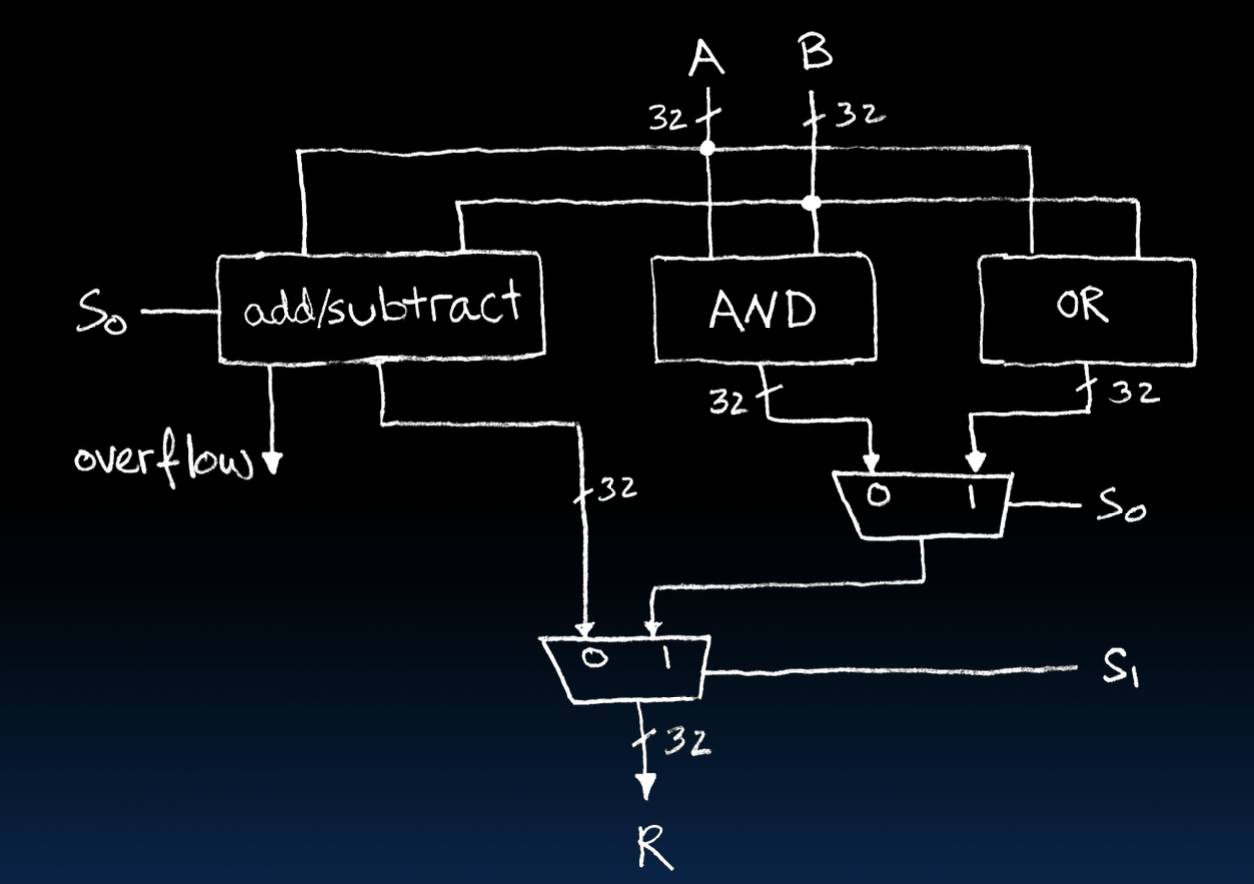 A B
32 32
S₀ add/subtract AND OR
32 32
overflow
32 0 1 S₀
0 1 S₁
32
R